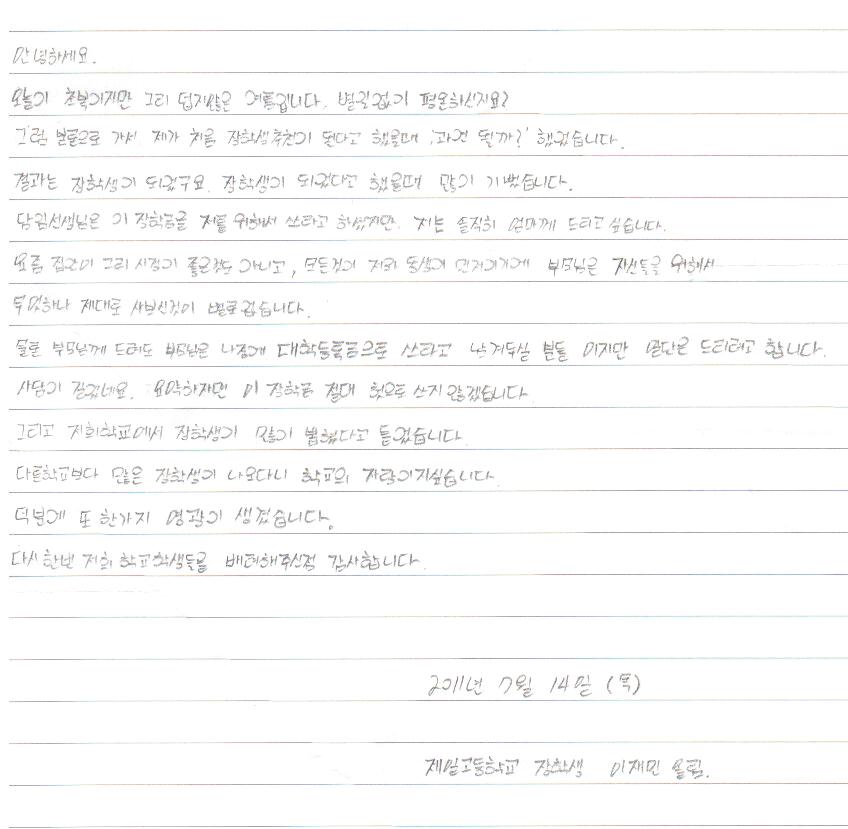 안녕하세요.
오늘이 초복이지만 그리 덥지않은 여름입니다. 별일없이 평온하신지요?
그럼 본론으로 가서 제가 처음 장학생추천이 된다고 했을때 '과연 될까?' 했었습니다.
결과는 장학생이 되었구요. 장학생이 되었다고 했을때 많이 기뻤습니다.
담임선생님은 이 장학금을 저를 위해서 쓰라고 하셨지만. 저는 솔직히 엄마께 드리고 싶습니다.
요즘 집안이 그리 사정이 좋은것도 아니고, 모든것이 저와 동생이 먼저이기에 부모님은 자신들을 위해서
무엇하나 제대로 사보신것이 별로없습니다.
물론 부모님께 드려도 부모님은 나중에 대학등록금으로 쓰라고 남겨두실 분들 이지만 일단은 드리려고 합니다.
사담이 길었네요. 요약하자면 이 장학금 절대 헛으로 쓰지 않겠습니다.
그리고 저희학교에서 장학생이 많이 뽑혔다고 들었습니다.
다른학교보다 많은 장학생이 나오다니 학교의 자랑이지싶습니다.
덕분에 또 한가지 영광이 생겼습니다.
다시한번 저희 학교학생들을 배려해주신점 감사합니다.
2011년 7월 14일 (목)
제일고등학교 장학생 이재민 올림.